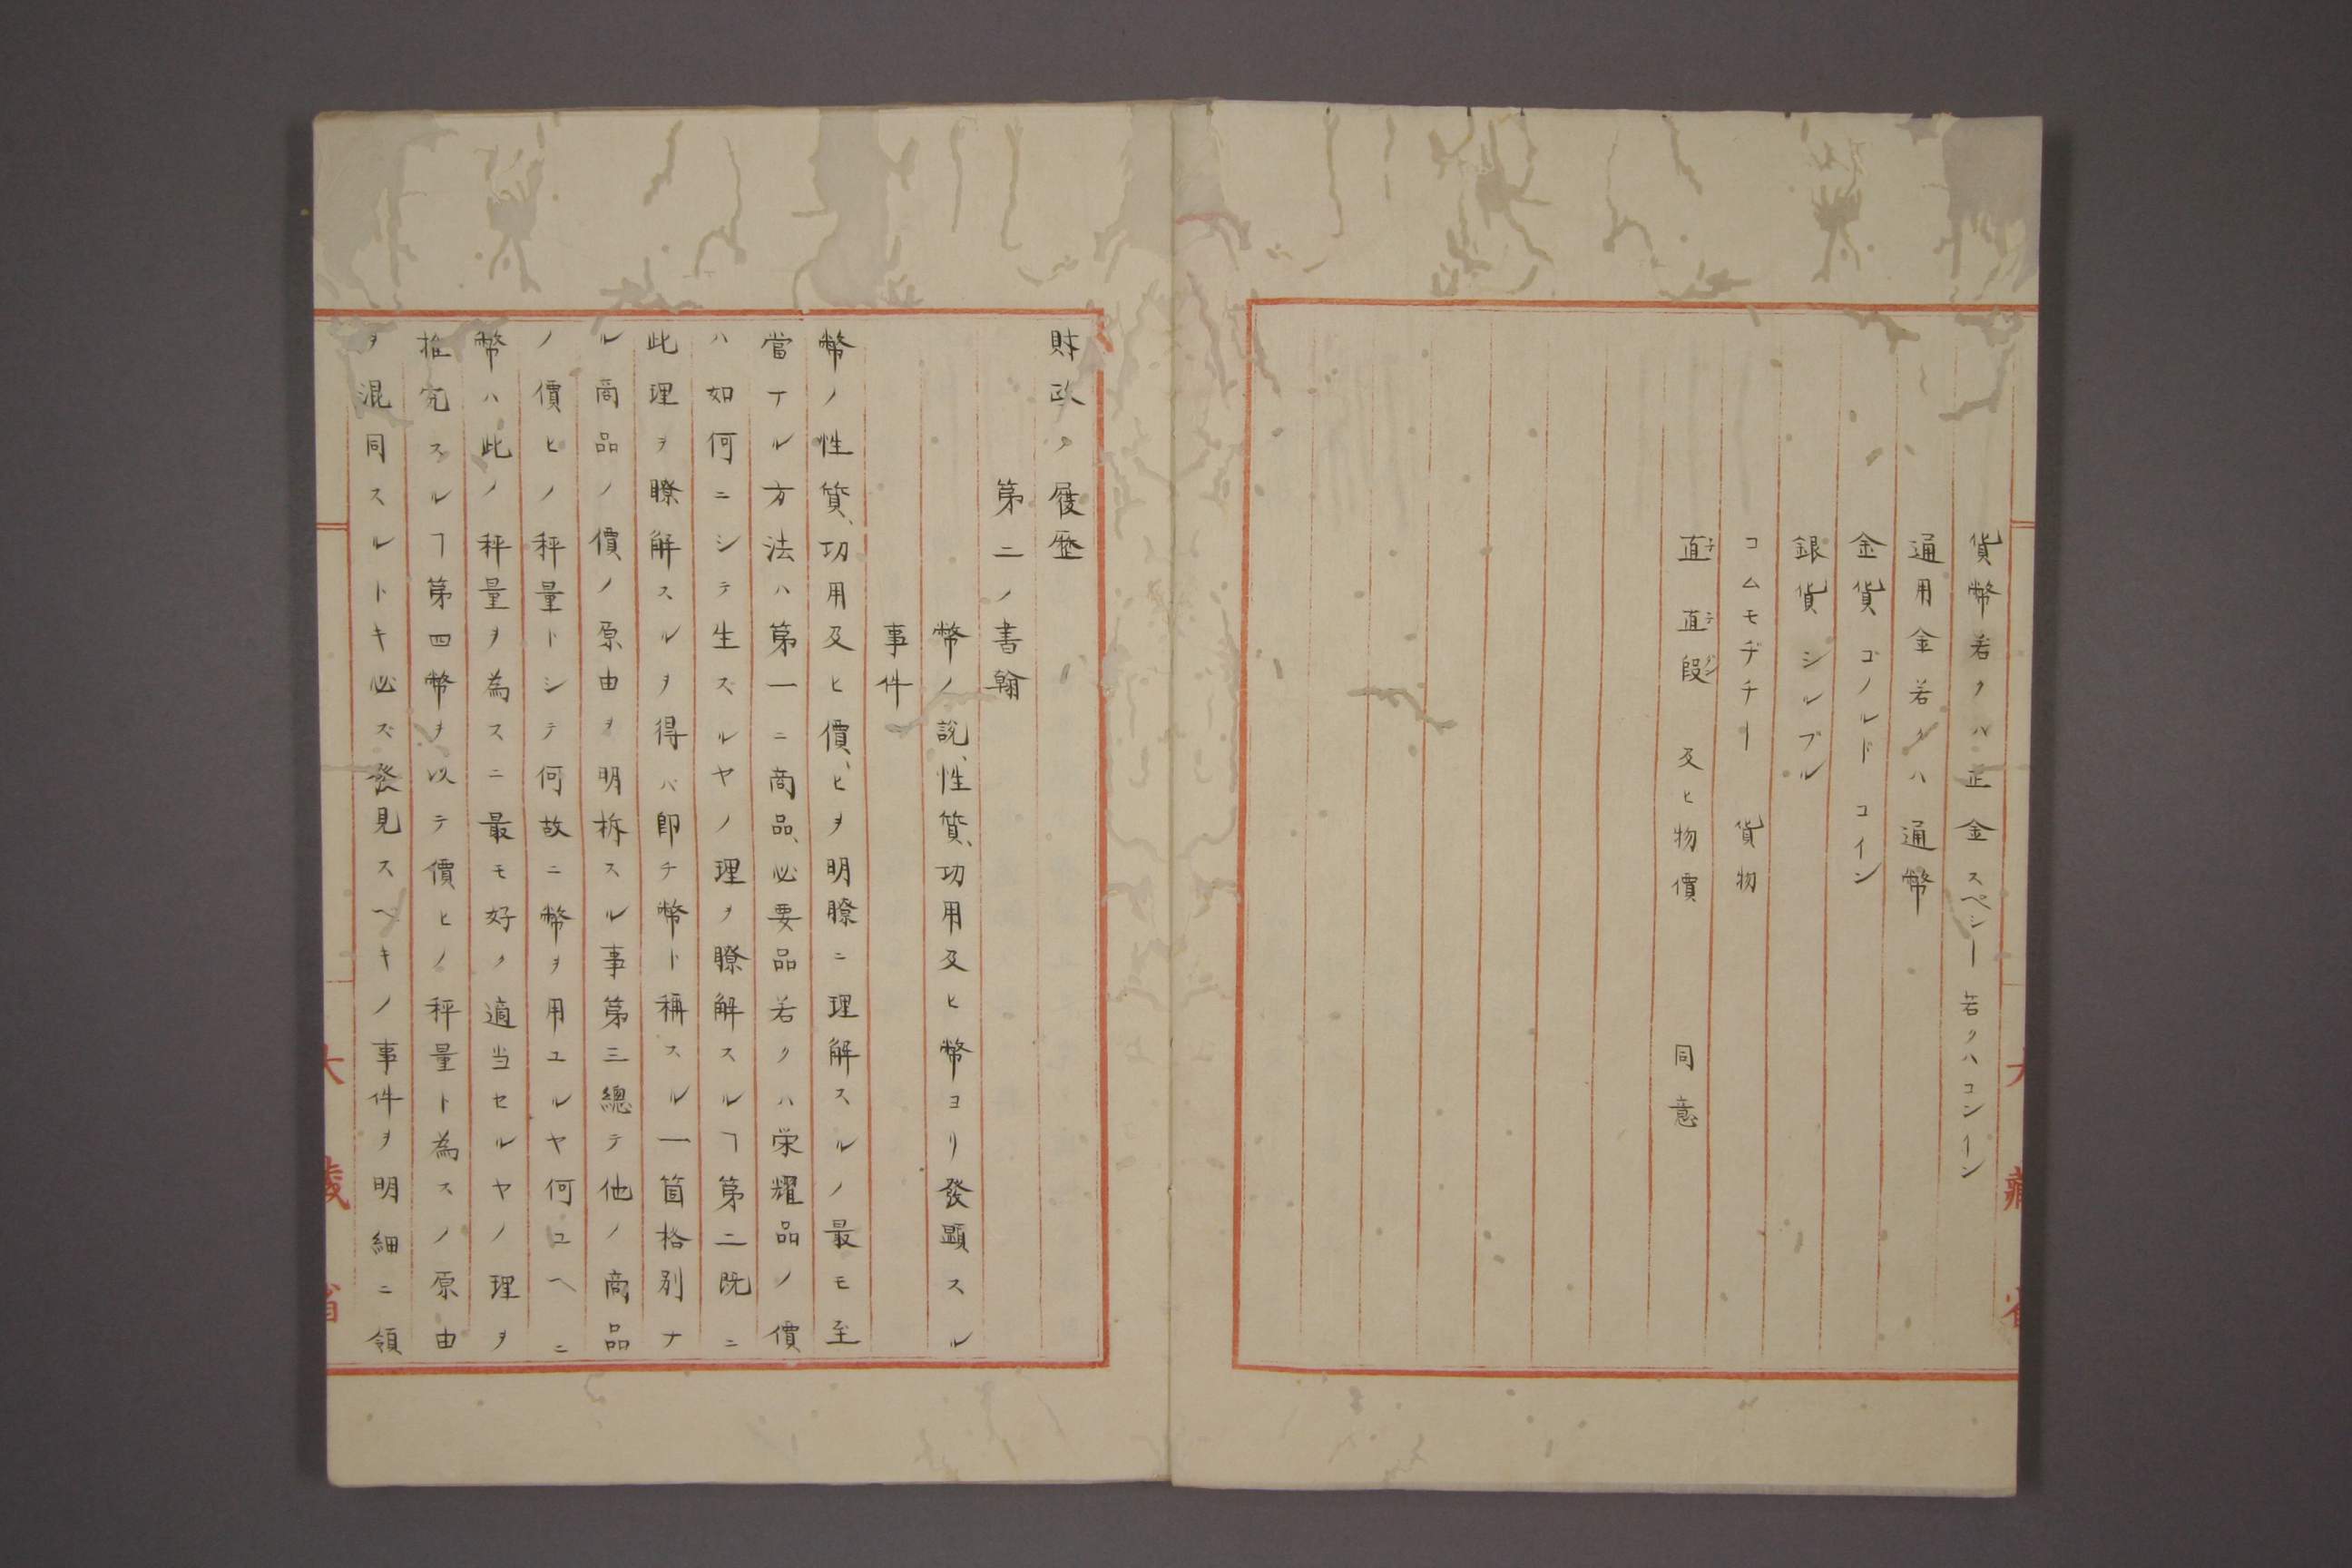 貨幣若クハ正金スペシー若クハコンーン
通用金若クハ通幣
金貨 ゴノルドコイン
銀貨 シルブル
コムモヂチー 貨物
直 直段 及ヒ物價 同意
大藏省
財政ノ履歴
第二ノ書翰
幣ノ說、性質、功用及ヒ幣ヨリ發顕スル
事件
幣ノ性質、功用及ヒ價、ヒヲ明瞭ニ理解スルノ最モ至
當ナル方法ハ第一ニ商品、必要品若クハ栄耀品ノ價
ハ如何ニシテ生スルヤノ理ヲ瞭解スルヿ第二既ニ
此理ヲ瞭解スルヲ得バ即チ幣ト稱スル一箇格別ナ
ル商品ノ價ノ原由ヲ明拆スル事第三總テ他ノ商品
ノ價ヒノ秤量トシテ何故ニ幣ヲ用ユルヤ何ユヘニ
幣ハ此ノ秤量ヲ為スニ最モ好ク適当セルヤノ理ヲ
推究スルヿ第四幣ヲ以テ價ヒノ秤量ト為スノ原由
ヲ混同スルトキ必ズ發見スヘキノ事件ヲ明細ニ領
大藏省